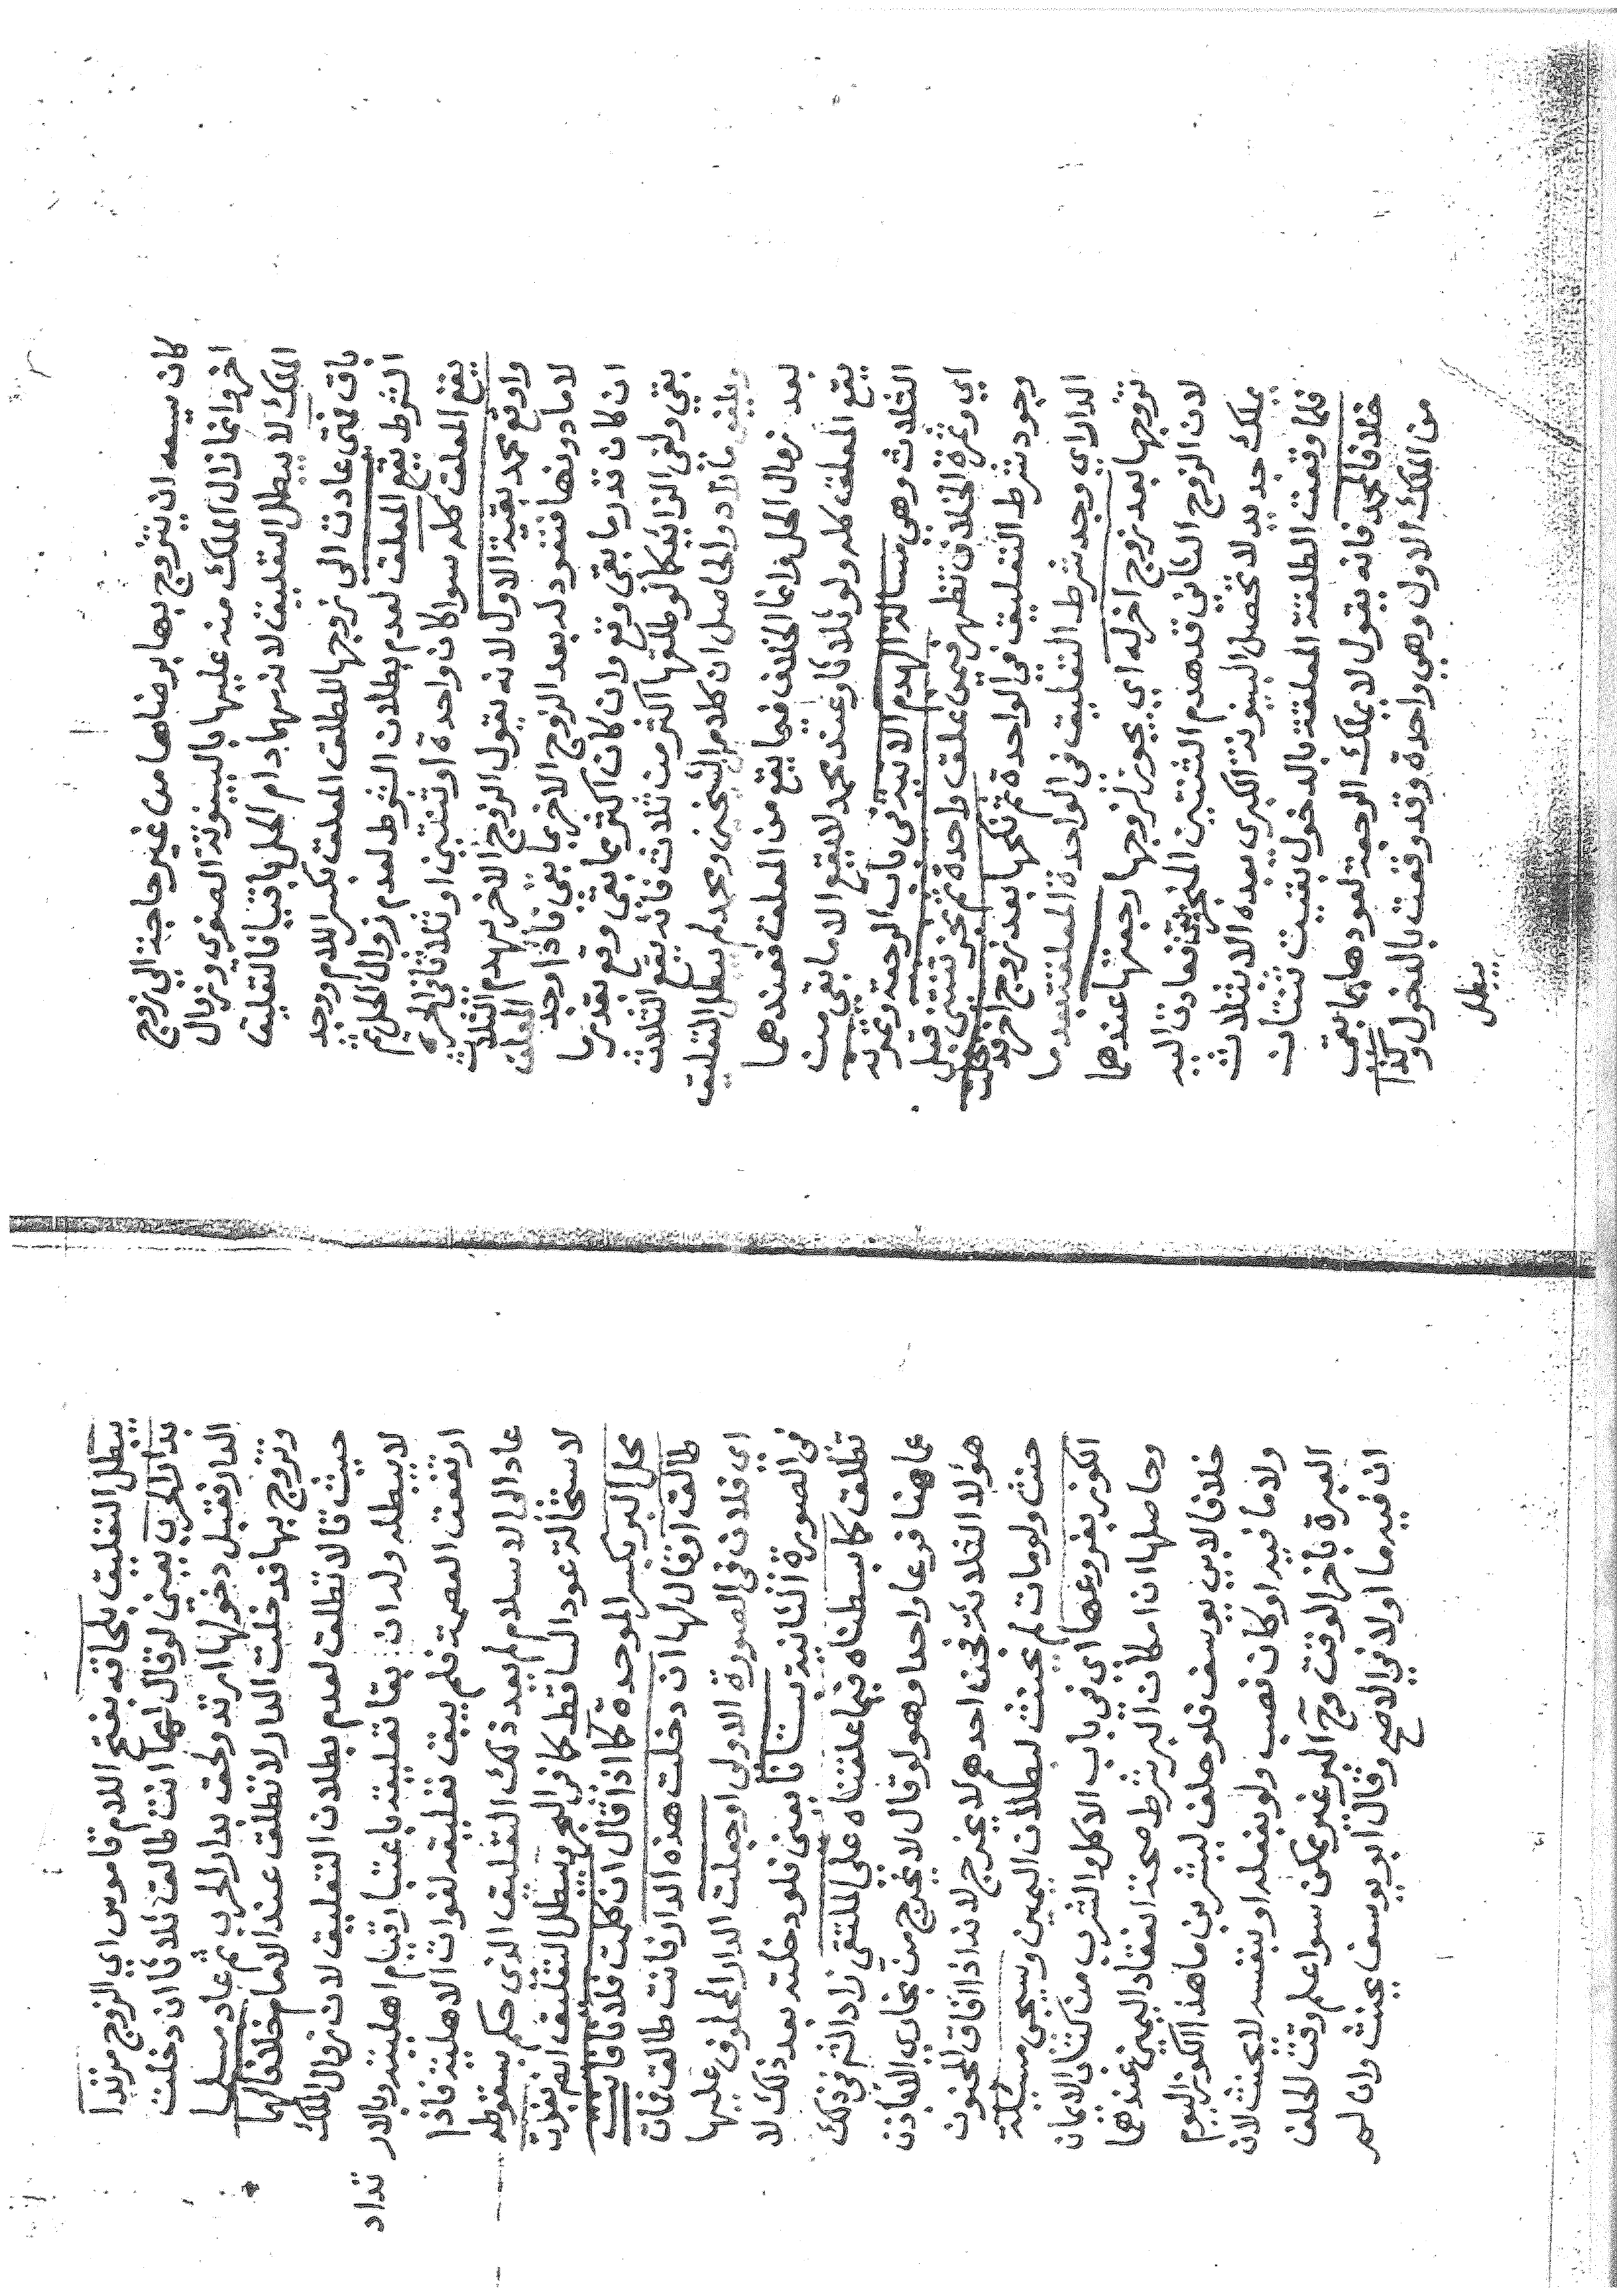 كان يسعه ان يتزوج بها برضاها من غير حاجة الى زوج
اخر وانما زال الملك منه عليها بالبينونة الصغرى وزوال
الملك لا يبطل التعليق لانه مهما دام المحل باقيا فالتعليق
باق فمتى عادت الى زوجها المطلق المعلق بكسر اللام ووجد
الشرط يقع المعلق لعدم بطلان الشرط لعدم زوال المحل ثم
يقع المعلق كله سوا كان واحدة او ثنتين او ثلاثا في الحرة
واوقع محمد بقية الاول لانه يقول الزوج الاخر يهدم الثلاث
لا ما دونها فتعود له بعد الزوج الاخر بما بقي فاذا وجد المعلق
ان كان قدر ما بقى وقع وان كان اكثر مما بقى وقع بقدر ما
بقى ولغى الزائد كما لو طلقها اكثر من ثلاث فانه يقع الثلاث
ويلغو ما زاد والحاصل ان كلام الشيخين ومحمد لم يبطل التعليق
بعد زوال المحل وانما الخلاف فيما يقع من المعلق فعندهما
يقع المعلق كله ولو ثلاثا وعند محمد لا يقع الا ما بقى من
الثلاث وهي مسالة الهدم الاتية فى باب الرجعة وثمرته
اي وثمرة الخلاف تظهر فيمن علق واحدة ثم نجز ثنتين قبل
وجود شرط التعليق في الواحدة ثم نكحها بعد زوج اخر فدخلت
الدار اي وجد شرط التعليق فى الواحدة المعلقة بعد ما
تزوجها بعد زوج اخر له اي يجوز لزوجها رجعتها عندهما
لان الزوج الثاني قد هدم الثنتين المنجزتين فعادت اليه
بملك جديد لا تحصل البينونة الكبرى بعده الا بثلاث
فلما وقعت الطلقة المعلقة بالدخول بقيت ثنتان
خلافا لمحمد فانه يقول لا يملك الرجعة لعودها بما بقى
من الملك الاول وهي واحدة وقد وقعت بالدخول وكذا
يبطل
يبطل التعليق بلحاقه بفتح اللام قاموس اي الزوج مرتدا
بدار الحرب يعنى لو قال لها انت طالق ثلاثا ان دخلت
الدار فقبل دخولها ارتد ولحق بدار الحرب ثم عاد مسلما
وتزوج بها فدخلت الدار لا تطلق عند الامام خلافا لهما
حيث قالا تطلق لعدم بطلان التعليق لان زوال الملك
لا يبطله وله ان بقا تعليقه باعتبار قيام اهليته وبالار تداد
ارتفعت العصمة فلم يبق تعليقه لفوات الاهلية فاذا
عاد الى الاسلام لم يعد ذلك التعليق الذى حكم بسقوطه
لاستحالة عود الساقط كما في البحر ويبطل التعليق ايضا بفوت
محل البر بكسر الموحدة كما اذا قال ان كلمت فلانا فانت
طالق او قال لها ان دخلت هذه الدار فانت طالق فمات
اي فلان فى الصورة الاولى او جعلت الدار المحلوف عليها
فى الصورة الثانية بستانا يعنى فلو دخلته بعد ذلك لا
تطلق كما بسطناه فيما علقناه على الملتقى زاد الثم فى ذلك
عما هنا فرعا واحدا وهو لو قال لا يخرج من بخارى الا باذن
هؤلا الثلاثة فجن احدهم لا يخرج لانه اذا افاق المجنون
حنث ولو مات لم يحنث لبطلان اليمين وسيجي مسئلة
الكوز بفروعها اى في باب الاكل والشرب من كتاب الايمان
وحاصلها ان امكان البر شرط صحة انعقاد اليمين عندهما
خلافا لابي يوسف فلو حلف ليشربن ماء هذا الكوز اليوم
ولا ما فيه او كان فصب ولو بفعله او بنفسه لا يحنث لان
العبرة باخر الوقت وح البر غير ممكن سوا علم وقت الحلف
ان فيه ما او لا في الاصح وقال ابو يوسف يحنث وان لم